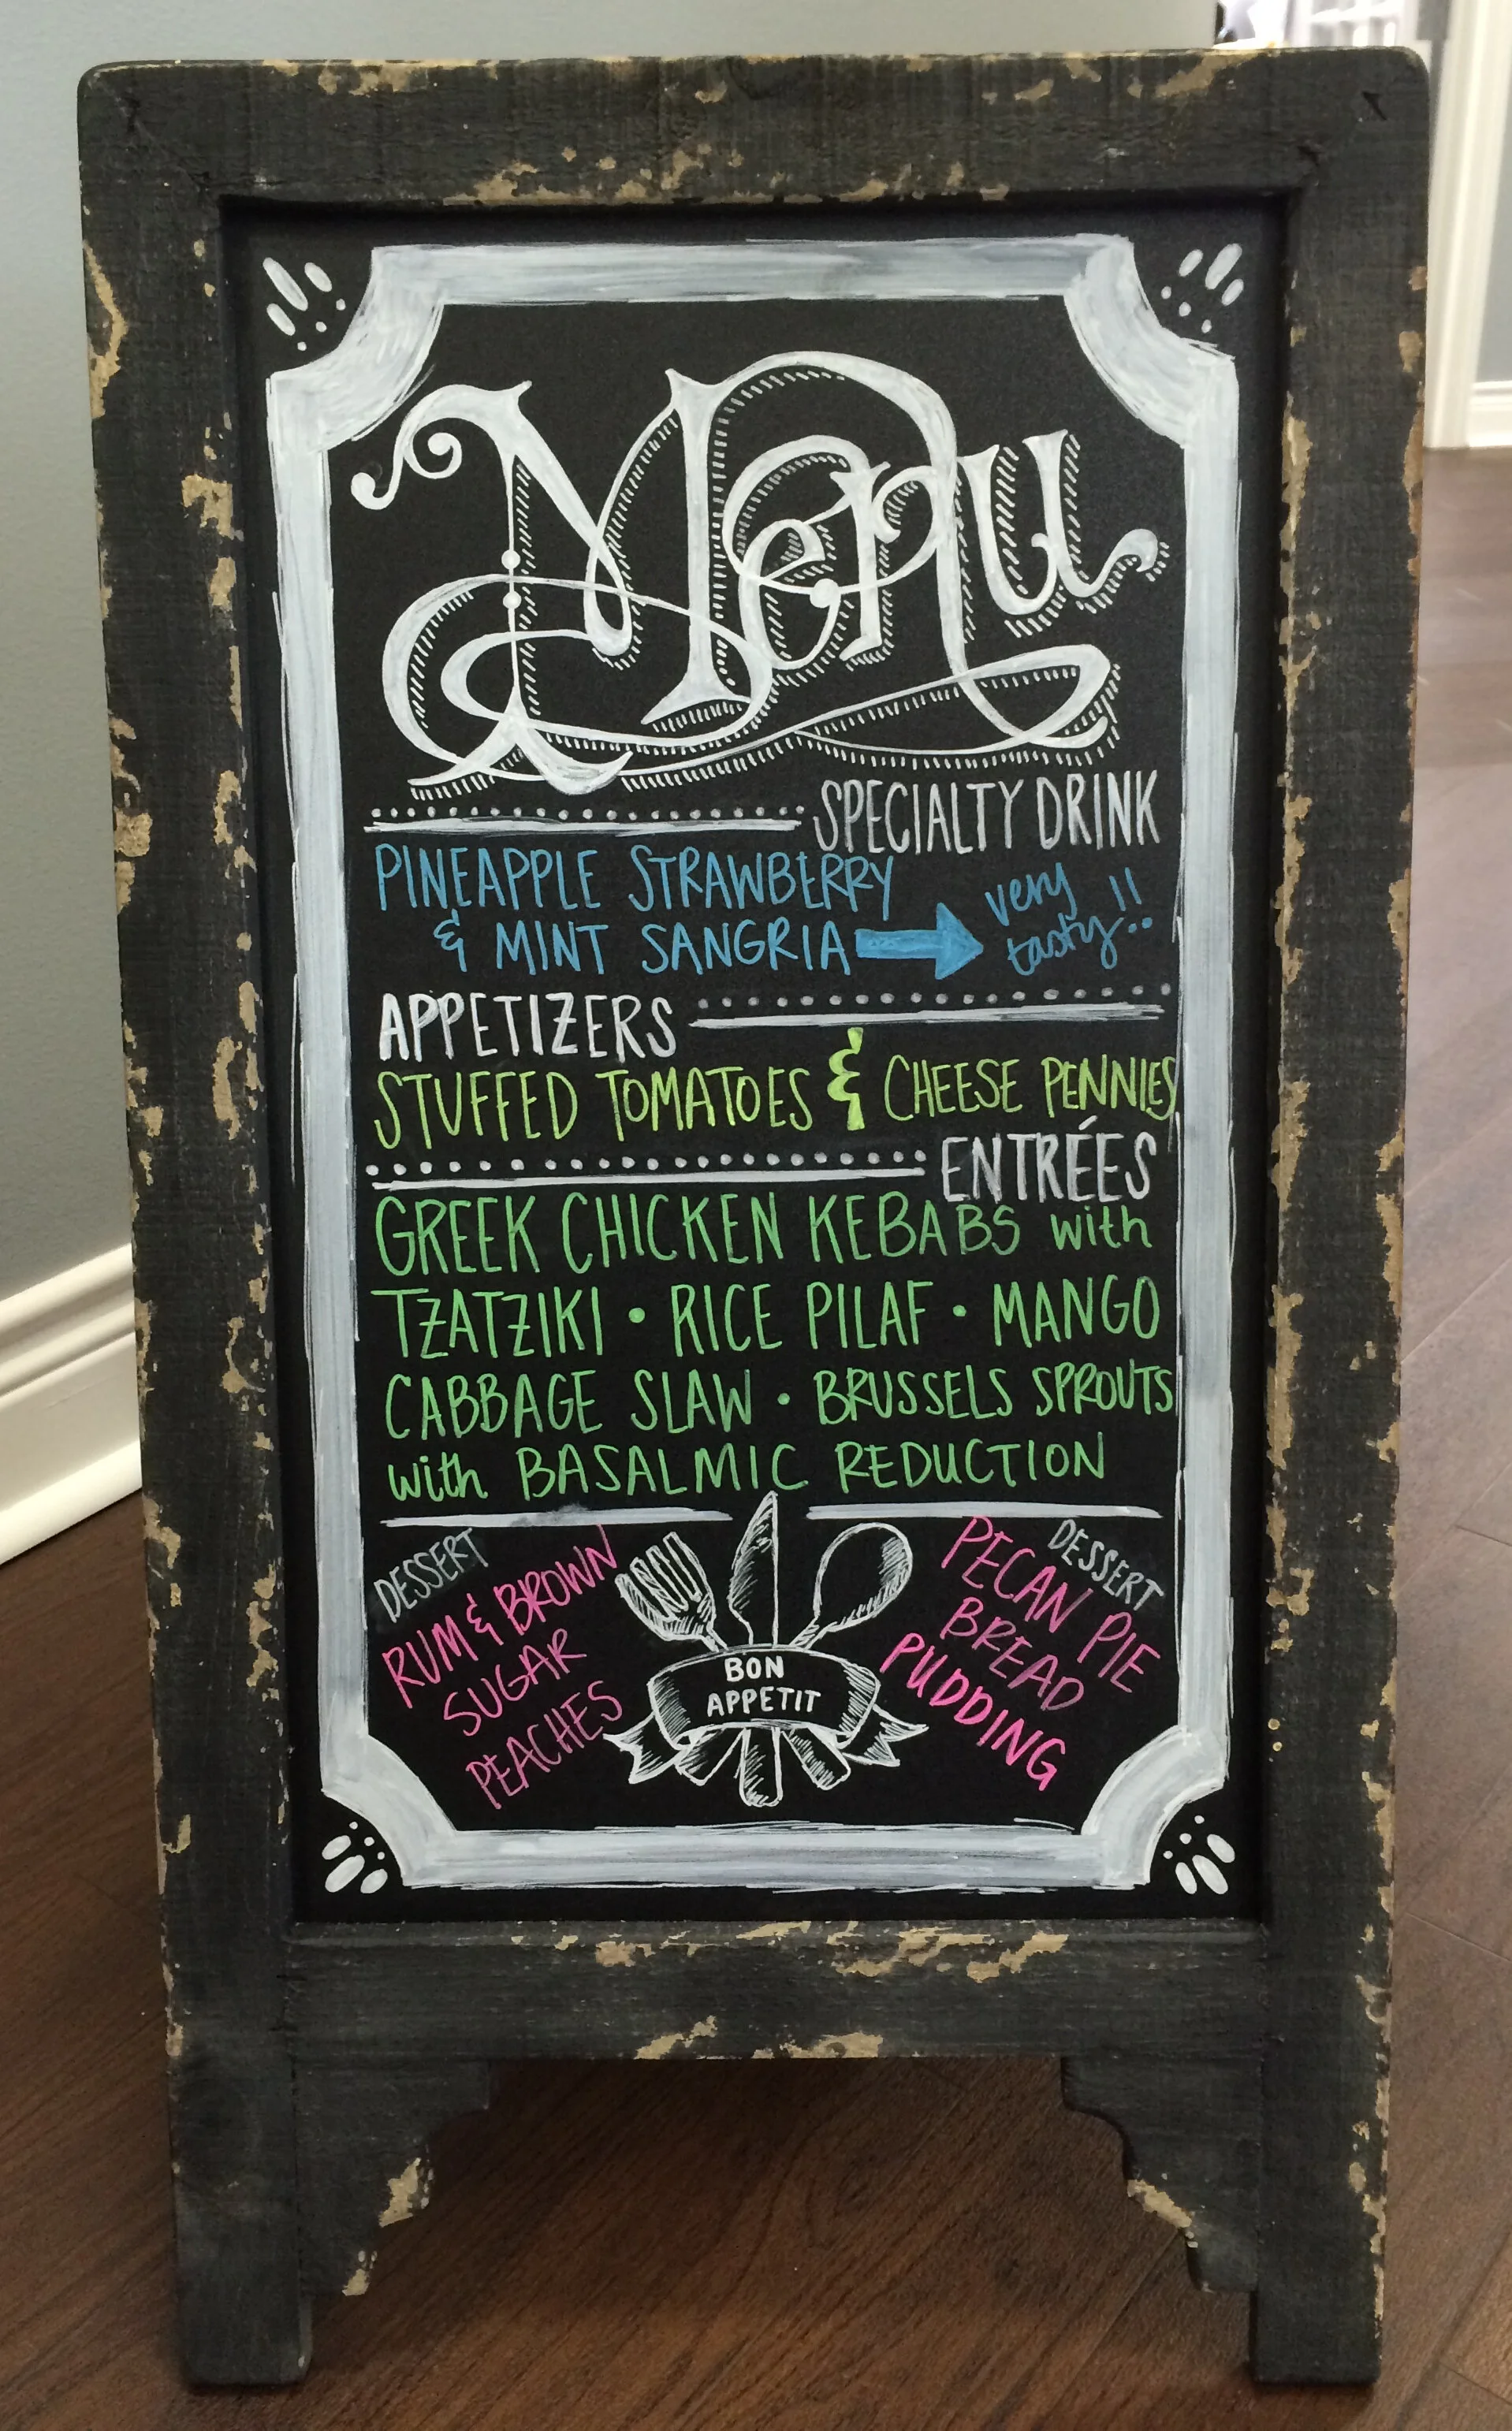 Menu
SPECIALTY DRINK
PINEAPPLE STRAWBERRY
& MINT SANGRIA
very
tasty!!
APPETIZERS
STUFFED TOMATOES & CHEESE PENNIES
ENTRÉES
GREEK CHICKEN KEBABS with
TZATZIKI • RICE PILAF • MANGO
CABBAGE SLAW • BRUSSELS SPROUTS
with BASALMIC REDUCTION
DESSERT
RUM & BROWN
SUGAR
PEACHES
BON
APPETIT
DESSERT
PECAN PIE
BREAD
PUDDING